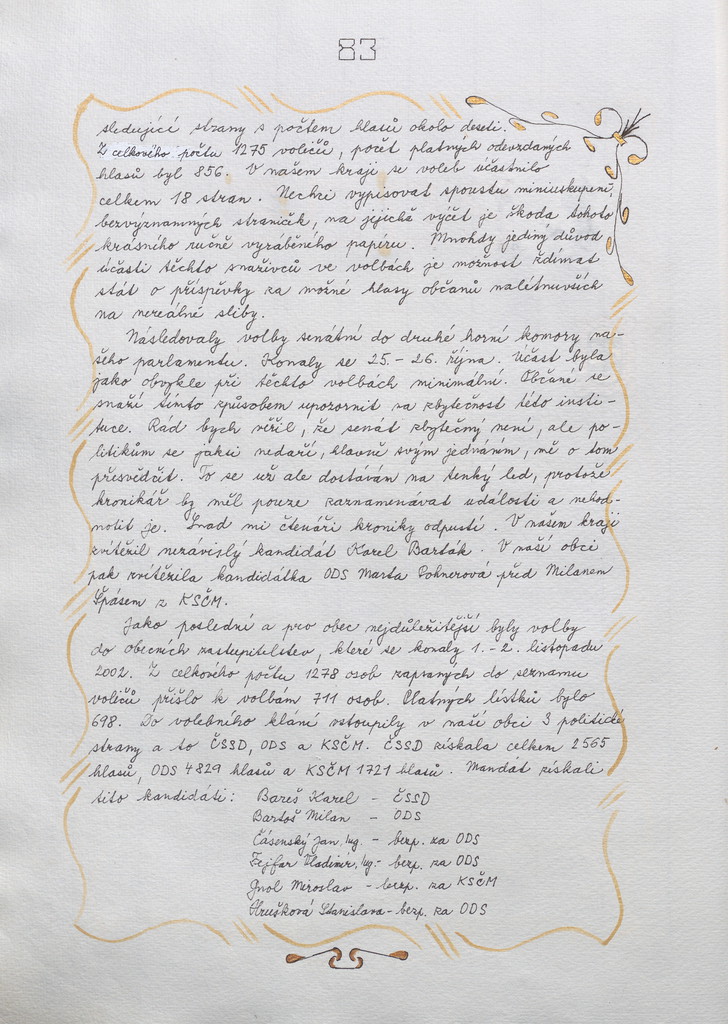 83
sledující strany s počtem hlasů okolo deseti.
Z celkového počtu 1275 voličů, počet platných odevzdaných
hlasů byl 856. V našem kraji se voleb účastnilo
celkem 18 stran. Nechci vypisovat spoustu miniuskupení,
bezvýznamných straniček, na jejichž výčet je škoda tohoto
krásného ručně vyráběného papíru. Mnohdy jediný důvod
účasti těchto snaživců ve volbách je možnost ždímat
stát o příspěvky za možné hlasy občanů nalétnuvších
na nereálné sliby.
Následovaly volby senátní do druhé horní komory na-
šeho parlamentu. Konaly se 25.-26. října. Účast byla
jako obvykle při těchto volbách minimální. Občané se
snaží tímto způsobem upozornit na zbytečnost této insti-
tuce. Rád bych věřil, že senát zbytečný není, ale po-
litikům se jaksi nedaří, hlavně svým jednáním, mě o tom
přesvědčit. To se už ale dostávám na tenký led, protože
kronikář by měl pouze zaznamenávat události a nehod-
notit je. Snad mi čtenáři kroniky odpustí. V našem kraji
zvítěžil nezávislý kandidát Karel Barták. V naší obci
pak zvítězila kandidátka ODS Marta Pohnerová před Milanem
Špásem z KSČM.
Jako poslední a pro obec nejdůležitější byly volby
do obecních zastupitelstev, které se konaly 1.-2. listopadu
2002. Z celkového počtu 1278 osob zapsaných do seznamu
voličů přišlo k volbám 711 osob. Platných lístků bylo
698. Do volebního klání vstoupily v naší obci 3 politické
strany a to ČSSD, ODS a KSČM. ČSSD získala celkem 2565
hlasů, ODS 4829 hlasů a KSČM 1721 hlasů. Mandát získali
tito kandidáti: Bareš Karel - ČSSD
Bartoš Milan - ODS
Čásenský Jan, Ing. - bezp. za ODS
Fejfar Vladimír, Ing. - bezp. za ODS
Gnol Miroslav - bezp. za KSČM
Hrušková Stanislava - bezp. za ODS